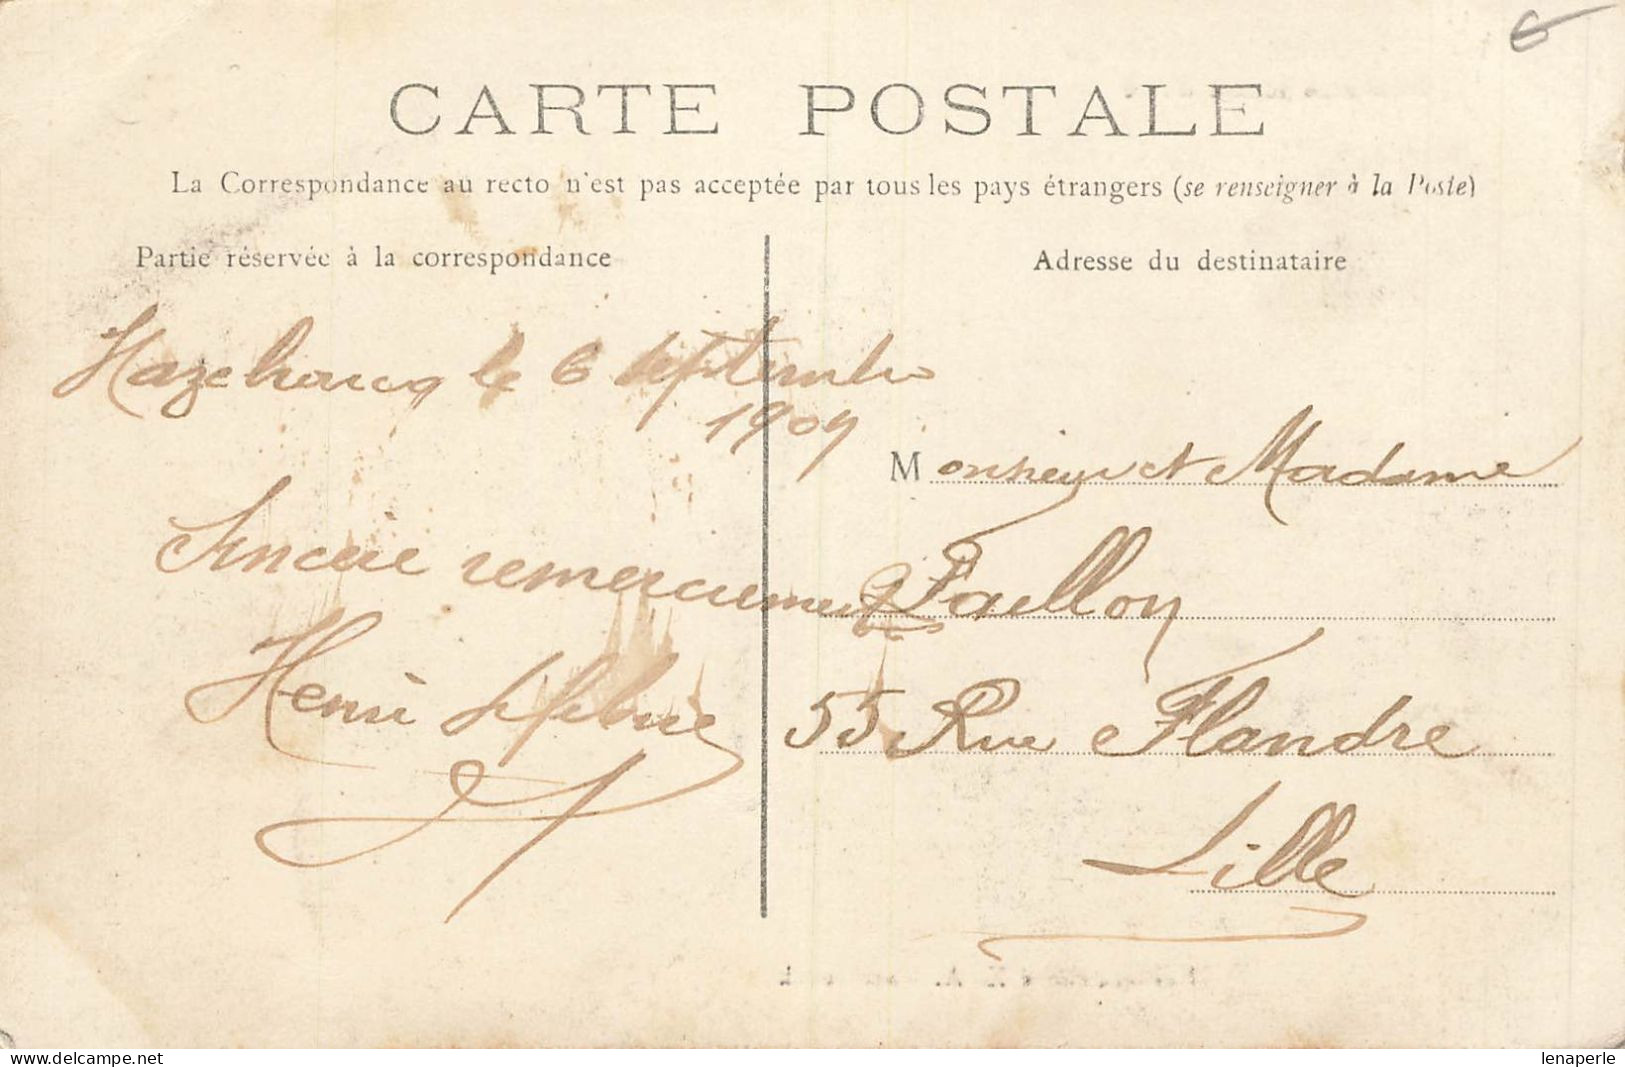 CARTE POSTALE
La Correspondance au recto n'est pas acceptée par tous les pays étrangers (se renseigner à la Poste)
Partie réservée à la correspondance
Hazebrouck le 6 septembre
1909
Sincere remerciements
Henri Lefebvre
Adresse du destinataire
Monsieur et Madame
Faillon
55 Rue Flandre
Lille
lenaperle